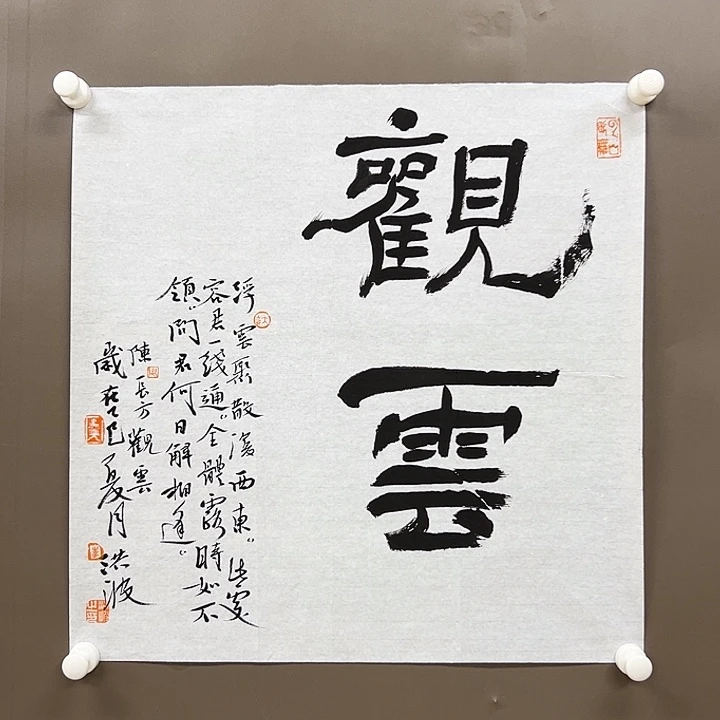 觀雲
浮雲聚散滿西東。出處
容君一綫通。全體露時如不
領。問君何日解相逢。
陳長方觀雲
歲在乙巳夏月洪波